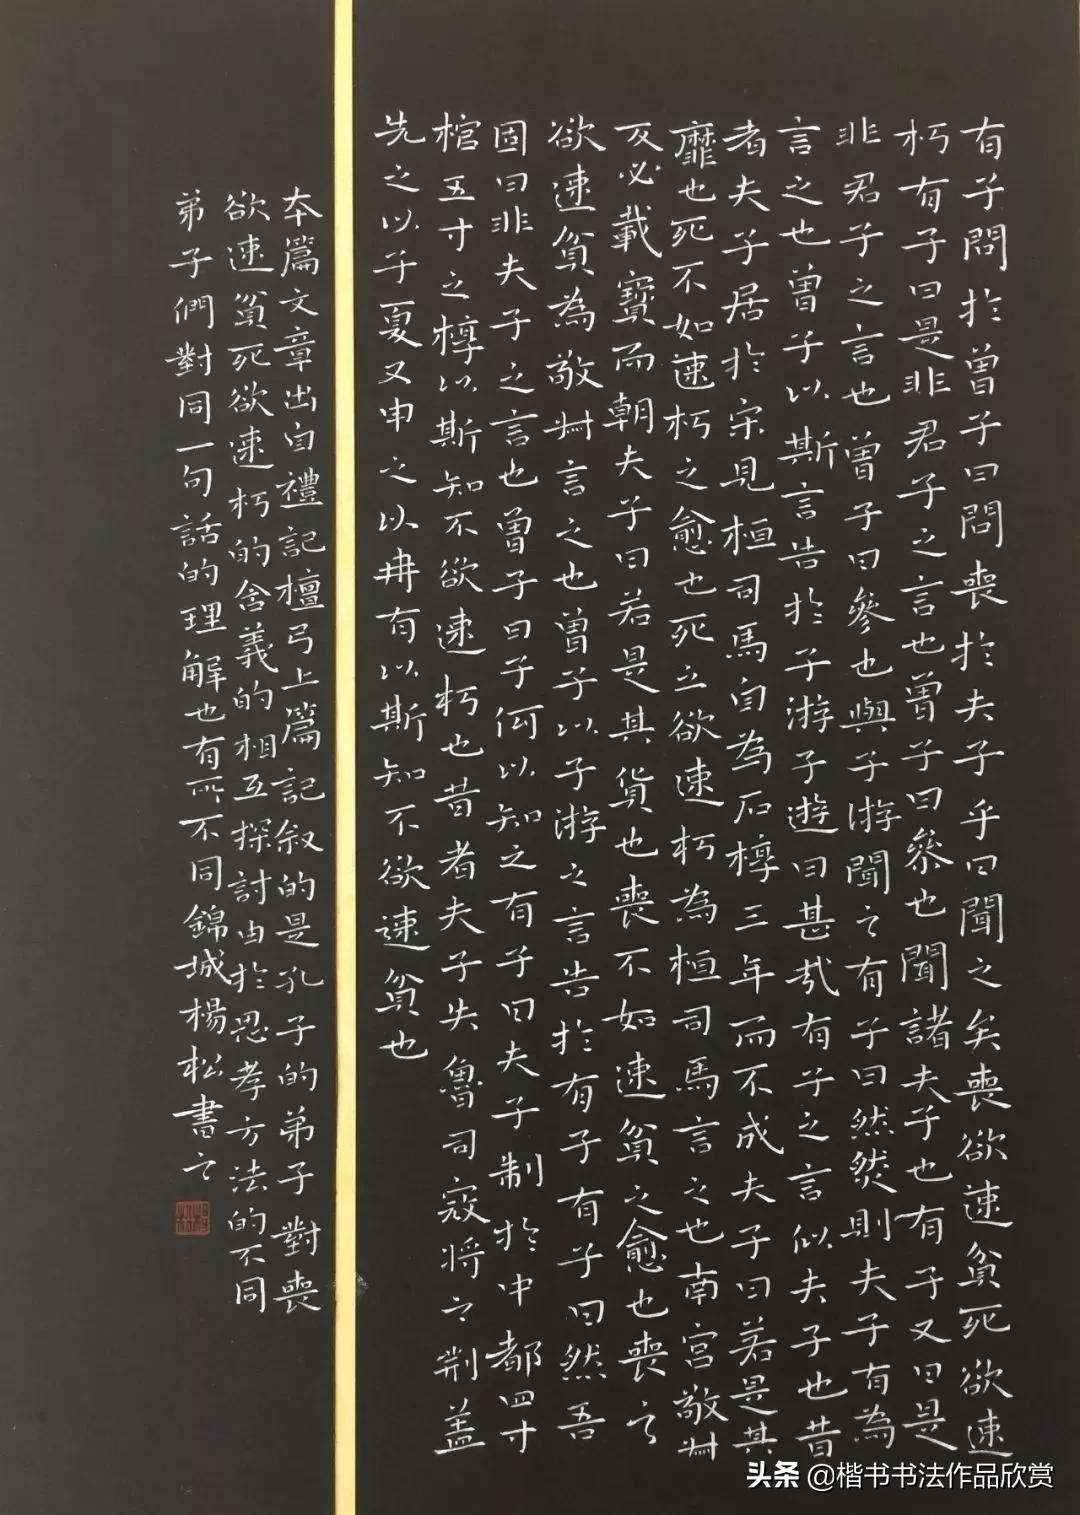 有子問於曾子曰問喪於夫子乎曰聞之矣喪欲速貧死欲速
朽有子曰是非君子之言也曾子曰參也聞諸夫子也有子又曰是
非君子之言也曾子曰參也與子游聞之有子曰然然則夫子有為
言之也曾子以斯言告於子游子遊曰甚哉有子之言似夫子也昔
者夫子居於宋見桓司馬自為石槨三年而不成夫子曰若是其
靡也死不如速朽之愈也死之欲速朽為桓司馬言之也南宮敬叔
反必載寶而朝夫子曰若是其貨也喪不如速貧之愈也喪之
欲速貧為敬叔言之也曾子以子游之言告於有子有子曰然吾
固曰非夫子之言也曾子曰子何以知之有子曰夫子制於中都四寸
棺五寸之槨以斯知不欲速朽也昔者夫子失魯司寇將之荆蓋
先之以子夏又申之以冉有以斯知不欲速貧也
本篇文章出自禮記檀弓上篇記叙的是孔子的弟子對喪
欲速貧死欲速朽的含義的相互探討由於思考方法的不同
弟子們對同一句話的理解也有所不同錦城楊松書之
头条@楷书书法作品欣赏